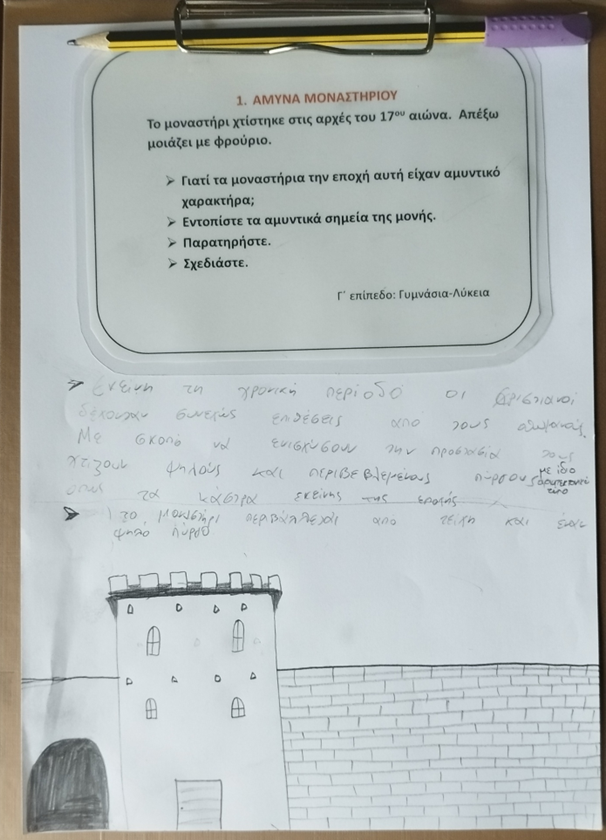 1. ΑΜΥΝΑ ΜΟΝΑΣΤΗΡΙΟΥ
Το μοναστήρι χτίστηκε στις αρχές του 17ου αιώνα. Απέξω
μοιάζει με φρούριο.
➢ Γιατί τα μοναστήρια την εποχή αυτή είχαν αμυντικό
χαρακτήρα;
➢ Εντοπίστε τα αμυντικά σημεία της μονής.
➢ Παρατηρήστε.
➢ Σχεδιάστε.
Γ΄ επίπεδο: Γυμνάσια-Λύκεια
➢ Εκείνη τη χρονική περίοδο οι Χριστιανοί
δέχονταν συνεχώς επιθέσεις από τους
Με σκοπό να ενισχύσουν την προστασία τους
χτίζουν ψηλούς και πύργους με ίδιο
τα κάστρα εκείνης της εποχής
➢ Το μοναστήρι από τείχη και έναν
ψηλό πύργο